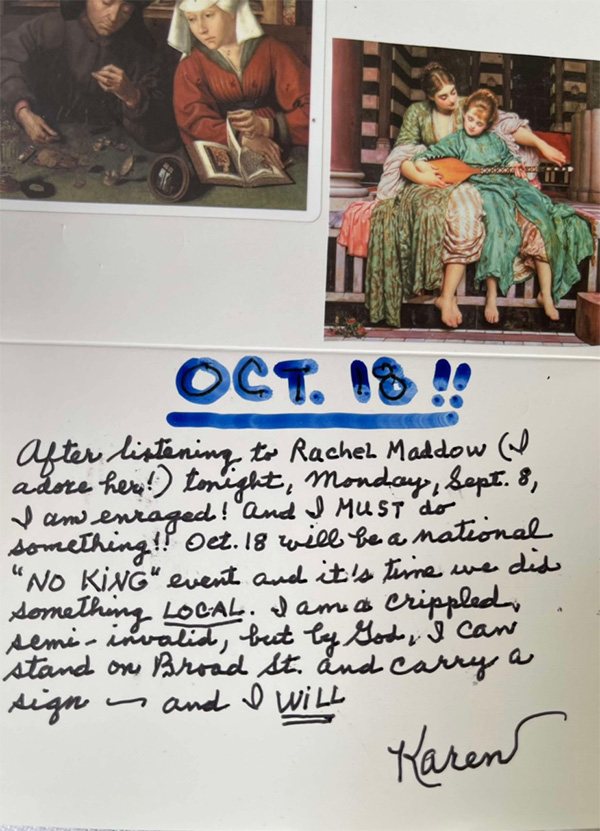 OCT. 18!!
After listening to Rachel Maddow (I
adore her!) tonight, Monday, Sept. 8,
I am enraged! And I MUST do
something!! Oct. 18 will be a national
"NO KING" event and it's time we did
something LOCAL. I am a crippled,
semi-invalid, but by God, I can
stand on Broad St. and carry a
sign — and I WILL
Karen